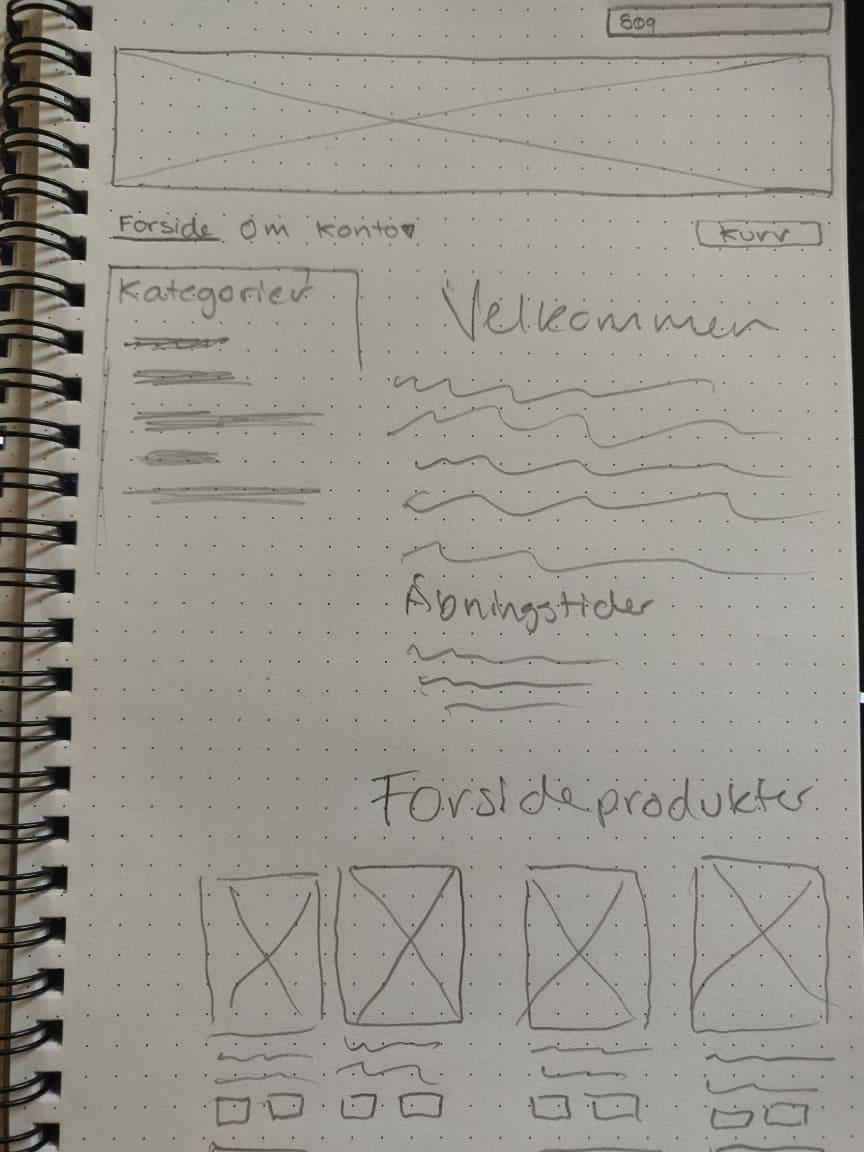 Søg
Forside Om Konto
Kurv
Kategorier
Velkommen
Åbningstider
Forsideprodukter